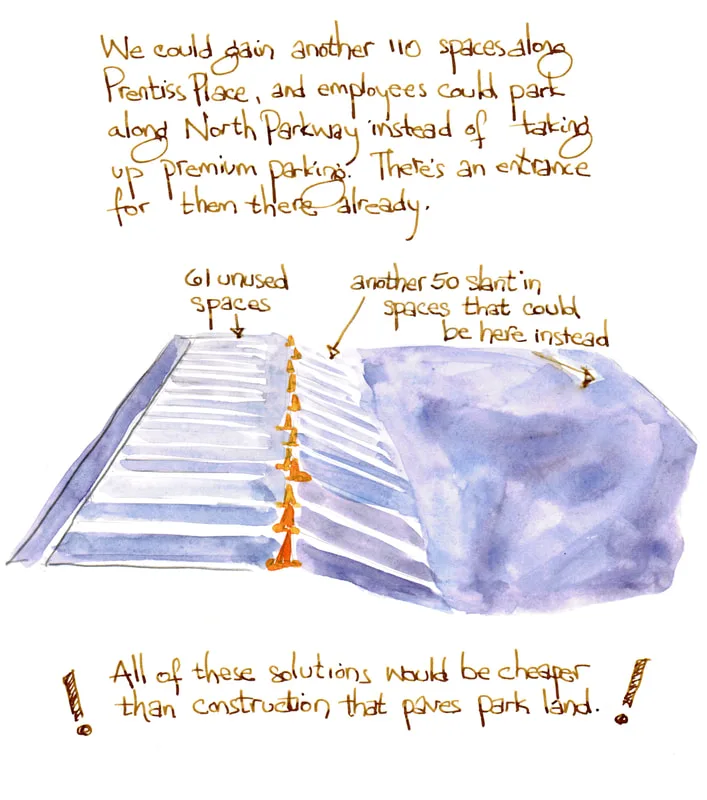 We could gain another 110 spaces along
Prentiss Place, and employees could park
along North Parkway instead of taking
up premium parking. There's an entrance
for them there already.
61 unused
spaces
another 50 slant in
spaces that could
be here instead
! All of these solutions would be cheaper !
than construction that paves park land.